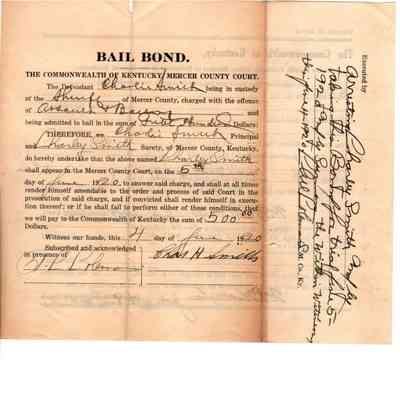 BAIL BOND.
THE COMMONWEALTH OF KENTUCKY, MERCER COUNTY COURT.
The Defendant Charlie Smith being in custody
of the Sheriff of Mercer County, charged with the offence
of Assault & Battery and
being admitted to bail in the sum of Five Hundred dollars:
THEREFORE, we Charlie Smith Principal
and Charley Smith Surety, of Mercer County, Kentucky,
do hereby undertake that the above named Charley Smith
shall appear in the Mercer County Court, on the 5th
day of June 1920, to answer said charge, and shall at all times
render himself amendable to the order and process of said Court in the
prosecution of said charge, and if convicted shall render himself in execu-
tion thereof; or if he shall fail to perform either of these conditions, that
we will pay to the Commonwealth of Kentucky the sum of 500 00
Dollars.
Witness our hands, this 4 day of June 1920
Subscribed and acknowledged
in presence of
Chas H Smith
Executed by
arresting Charley Smith and by
taking this Bond for trial June 5-
the within
June 4 1920
S. M. Co. Ky.